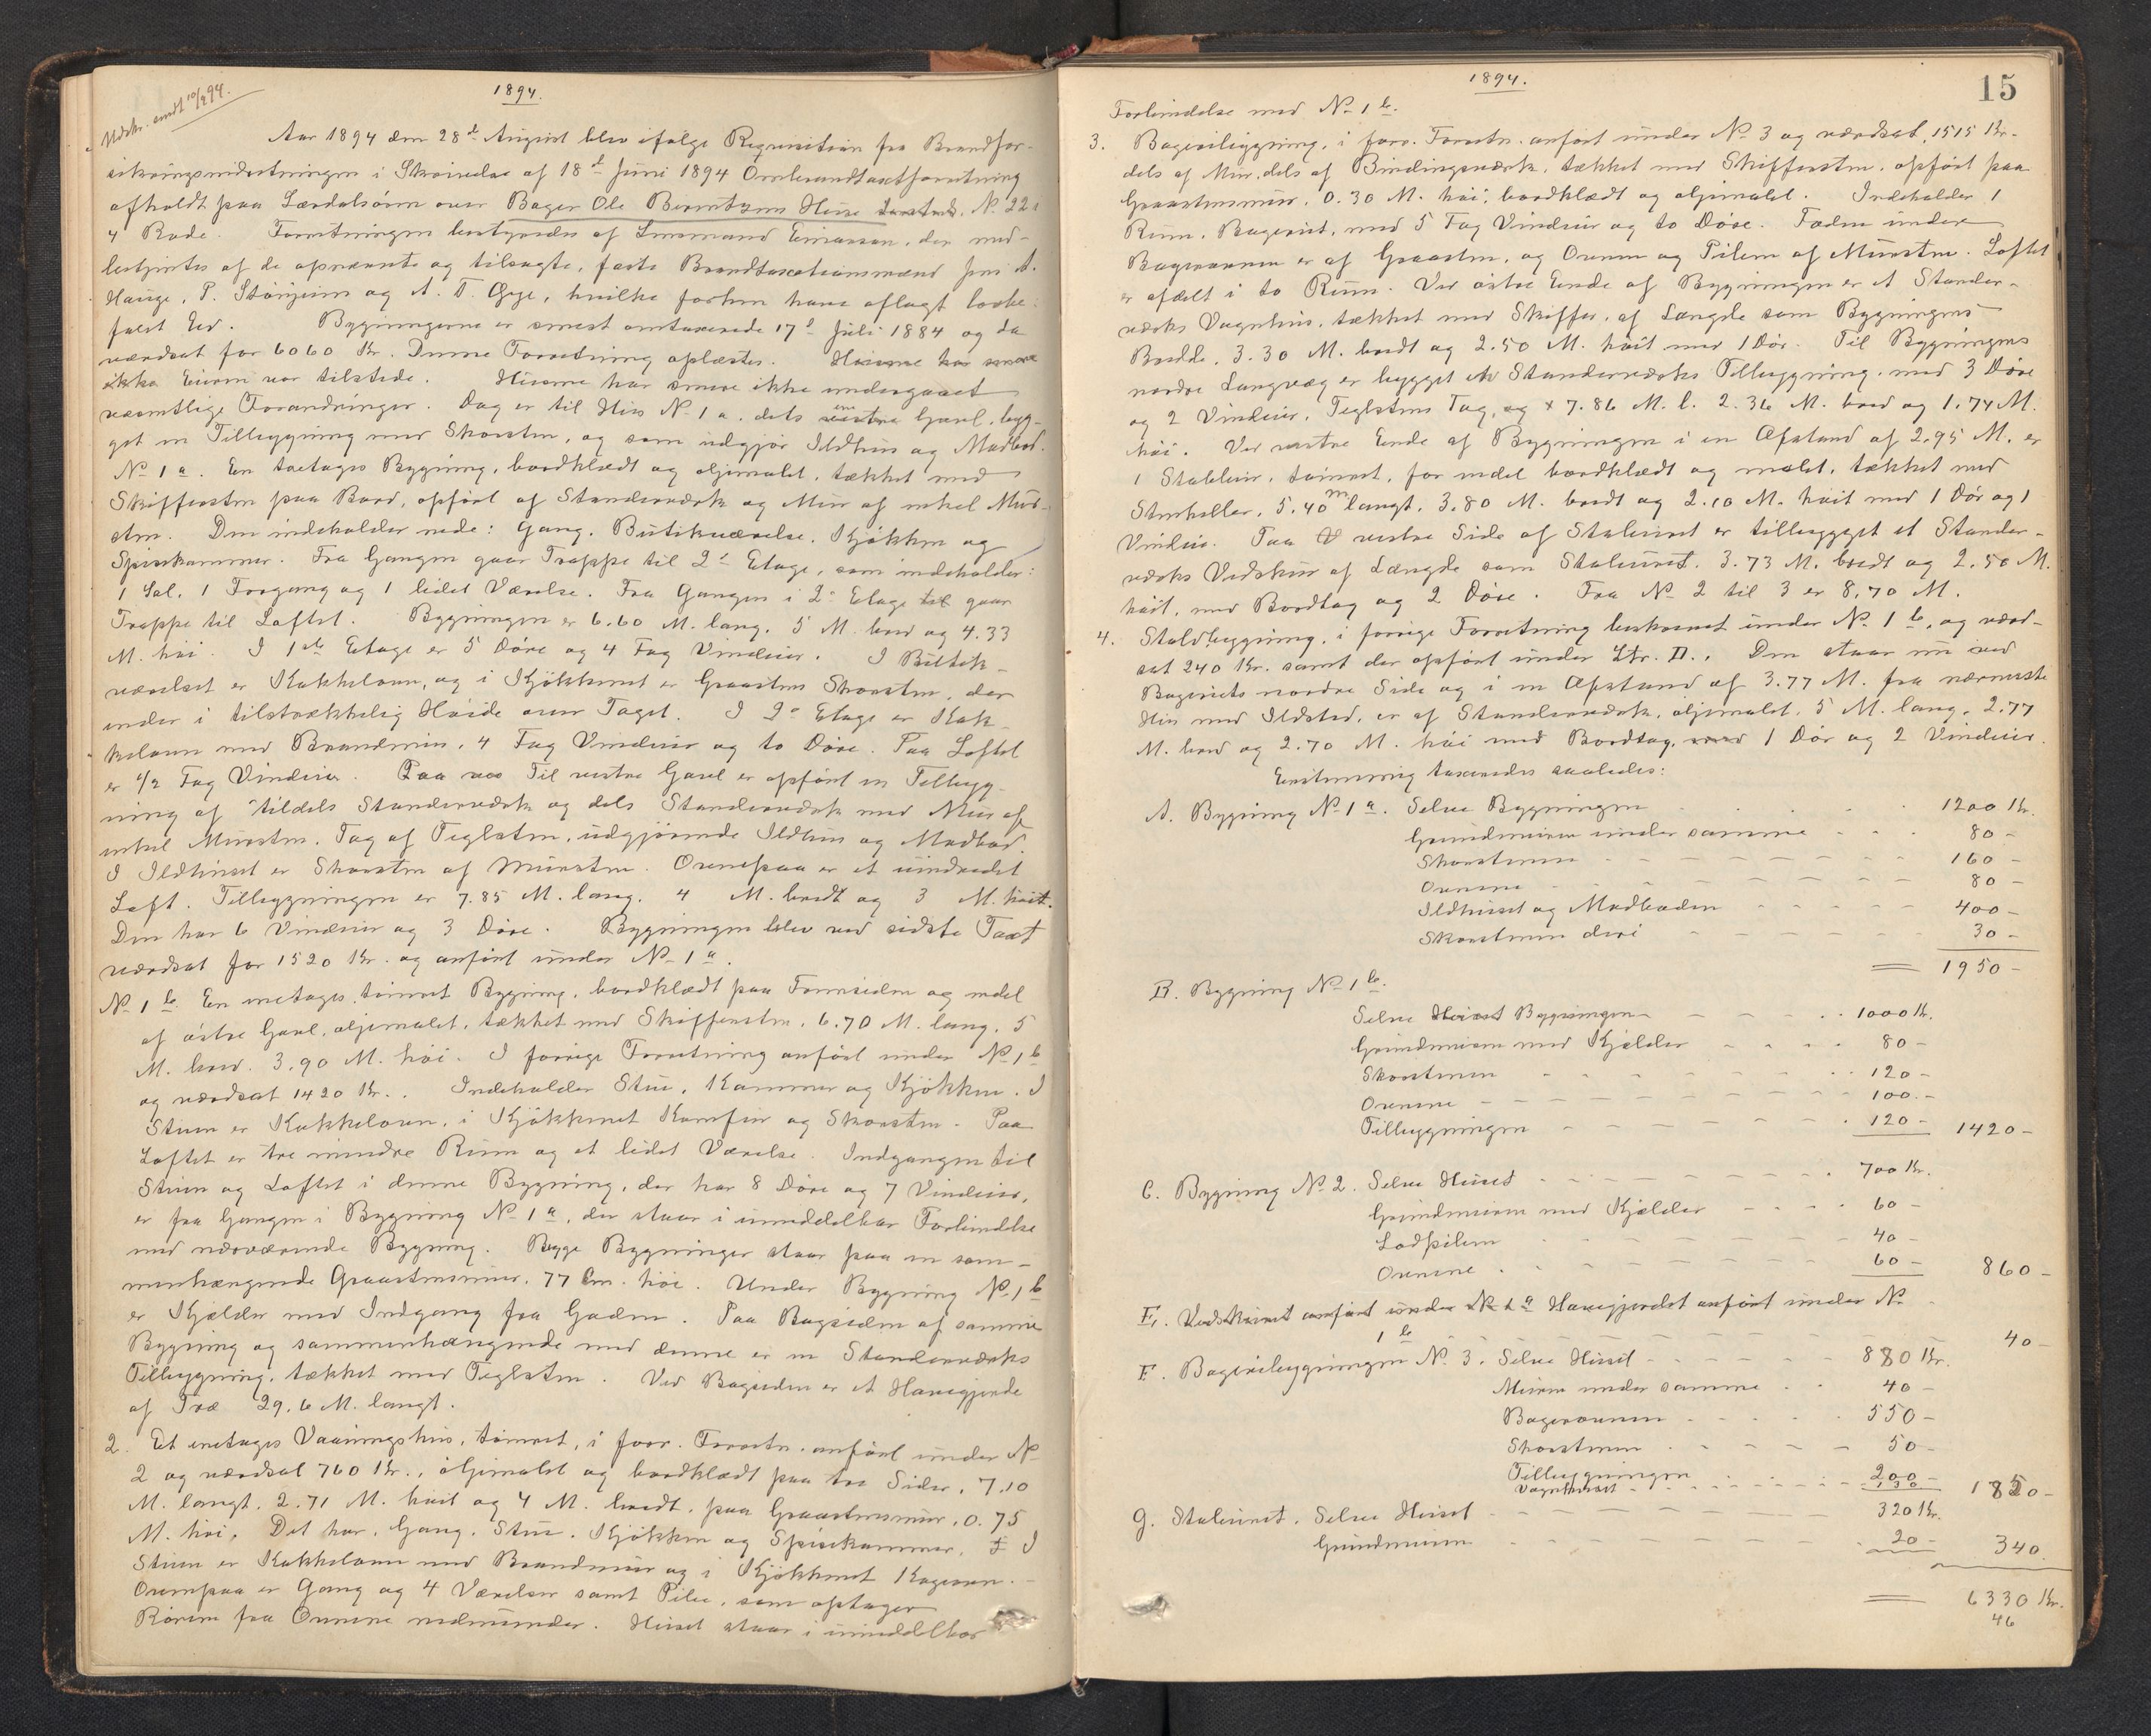 Udskr. sendt 10/9 94.
1894.
Aar 1894 den 28de August blev ifølge Requisition fra Brandfor-
sikringsindretningen i Skrivelse af 18de Juni 1894 Ombrandtaxtforretning
afholdt paa Lærdalsøren over Bager Ole Berntzens Huse N. 22 i
4 Rode. Forretningen bestyredes af Lensmand Einarsen, der med-
betjentes af de opnævnte og tilsagte, faste Brandtaxationsmænd Jens A.
Hauge, P. Stönjum og A. T. Øye, hvilke forhen have aflagt lovbe-
falet Ed. Bygningerne er senest omtaxerede 17de Juli 1884 og da
værdsat for 6060 Kr. Denne Forretning oplæstes. Husene har senere
ikke Eieren var tilstede. Husene har senere ikke undergaaet
væsentlige Forandringer. Dog er til Hus No 1 a. dets Gavl, byg-
get en Tilbygning med Skorsten, og som udgjør Ildhus og Madbod.
No 1 a. En toetages Bygning, bordklædt og oljemalet, tækket med
Skiffersten paa Bord, opført af Standerværk og Mur af enkel Mur-
sten. Den indeholder nede: Gang, Butikværelse, Kjøkken og
Spisekammer. Fra Gangen gaar Trappe til 2den Etage, som indeholder:
1 Sal, 1 Forgang og 1 lidet Værelse. Fra Gangen i 2den Etage til gaar
Trappe til Loftet. Bygningen er 6.60 M. lang, 5 M. bred og 4.33
M. høi. I 1ste Etage er 5 Døre og 4 Fag Vinduer. I Butik-
værelset er Kakkelovn, og i Kjøkkenet er Graastens Skorsten, der
ender i tilstrækkelig Høide over Taget. I 2den Etage er Kak-
kelovn med Brandmur, 4 Fag Vinduer og to Døre. Paa Loftet
er 1/2 Fag Vinduer. Paa ves Til vestre Gavl er opført en Tilbyg-
ning af tildels Standerværk og dels Standerværk med Mur af
enkel Mursten. Tag af Teglsten, udgjørende Ildhus og Madbod.
I Ildhuset er Skorsten af Mursten. Ovenpaa er et uindredet
Loft. Tilbygningen er 7.85 M. lang, 4 M. bredt og 3 M. høit.
Den har 6 Vinduer og 3 Døre. Bygningen blev ved sidste Taxt
værdsat for 1520 Kr. og anført under No 1 a.
No 1 b. En enetages, tømret Bygning, bordklædt paa Forsiden og endel
af østre Gavl, oljemalet, tækket med Skiffersten, 6.70 M. lang, 5
M. bred, 3.90 M. høi. I forrige Forretning anført under No 1 b
og værdsat 1420 Kr.. Indeholder Stue, Kammer og Kjøkken. I
Stuen er Kakkelovn, i Kjøkkenet Komfur og Skorsten. Paa
Loftet er tre mindre Rum og et lidet Værelse. Indgangen til
Stuen og Loftet i denne Bygning, der har 8 Døre og 7 Vinduer,
er fra Gangen i Bygning No 1 a, der staar i umiddelbar Forbindelse
med nærværende Bygning. Begge Bygninger staar paa en sam-
menhængende Graastensmur, 77 Cm. høi. Under Bygning No 1 b
er Kjælder med Indgang fra Gaden. Paa Bagsiden af samme
Bygning og sammenhængende med denne er en Standerværks
Tilbygning, tækket med Teglsten. Ved Bagsiden er et Havegjerde
af Træ 29.6 M. langt.
2. Et enetages Vaaningshus, tømret, i forr. Forretn. anført under No
2 og værdsat 760 Kr., oljemalet og bordklædt paa tre Sider, 7.10
M. langt, 2.71 M. høit og 4 M. bredt, paa Graastensmur, 0.75
M. høi. Det har, Gang, Stue, Kjøkken og Spisekammer. I
Stuen er Kakkelovn med Brandmur og i Kjøkkenet Kogeovn.
Ovenpaa er Gang og 4 Værelser samt Pibe, som optager
Rørene fra Ovnene nedenunder. Huset staar i umiddelbar
1894.
15
Forbindelse med No 1 b.
3. Bageribygning, i forr. Forretn. anført under No 3 og værdsat 1515 Kr.
dels af Mur, dels af Bindingsværk, tækket med Skiffersten, opført paa
Graastensmur, 0.30 M. høi, bordklædt og oljemalet. Indeholder 1
Rum, Bageriet, med 5 Fag Vinduer og to Døre. Foden under
Bagerovnen er af Graasten, og Ovnen og Piben af Mursten. Loftet
er afdelt i to Rum. Ved østre Ende af Bygningen er et Stander-
værks Vognhus, tækket med Skiffer, af Længde som Bygningens
Bredde, 3.30 M. bredt og 2.50 M. høit med 1 Dør. Til Bygningens
nordre Langvæg er bygget en Standerværks Tilbygning, med 3 Døre
og 2 Vinduer, Teglstens Tag, og 7.86 M. l. 2.36 M. bred og 1.74 M.
høi. Ved vestre Ende af Bygningen i en Afstand af 2.95 M. er
1 Staldhus, tømret, for endel bordklædt og malet, tækket med
Stenheller, 5.40 m langt, 3.80 M. bredt og 2.10 M. høit med 1 Dør og 1
Vindue. Paa vestre Side af Stalhuset er tilbygget et Stander-
værks Vedskur af Længde som Stalhuset, 3.73 M. bredt og 2.50 M.
høit, med Bordtag og 2 Døre. Fra No 2 til 3 er 8,70 M.
4. Staldbygning, i forrige Forretning beskrevet under No 1 b, og værd-
sat 240 Kr. samt der opført under Ltr. D.. Den staar nu ved
Bageriets nordre Side og i en Afstand af 3.77 M. fra nærmeste
Hus med Ildsted, er af Standerværk, oljemalet, 5 M. lang, 2.77
M. bred og 2.70 M. høi med Bordtag, med 1 Dør og 2 Vinduer.
Enstemmig taxeredes saaledes:
A. Bygning No 1 a. Selve Bygningen 1200 Kr.
Grundmuren under samme 80 -
Skorstenen 160 -
Ovnene 80 -
Ildhuset og Madboden 400 -
Skorstenen deri 30 -
= 1950 -
B. Bygning No 1 b.
Selve Huset Bygningen 1000 Kr.
Grundmuren med Kjælder 80 -
Skorstenen 120 -
Ovnene 100. -
Tilbygningen 120 - 1420 -
C. Bygning No 2. Selve Huset 700 Kr.
Grundmuren med Kjælder 60 -
Lodpiben 40 -
Ovnene 60 - 860 -
E. Vedskuret anført under No 1 a Havegjerdet anført under No
1 b 40 -
F. Bageribygningen No 3. Selve Huset 880 Kr.
Muren under samme 40 -
Bagerovnen 550 -
Skorstenen 50 -
Tilbygningen 200 -
Vognhuset 130 - 1850 -
G. Stalhuset. Selve Huset 320 Kr.
Grundmuren 20 - 340.
= 6330 Kr.
46